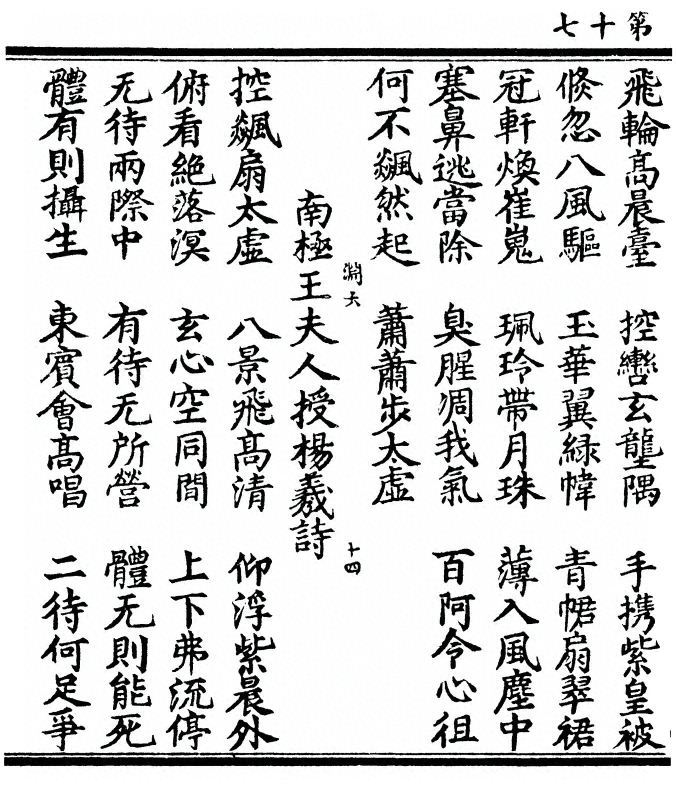 第十七
飛輪髙晨臺 控轡玄壟隅 手携紫皇被
倐忽八風驅 玉華翼緑幃 青帬扇翠裙
冠軒煥崔嵬 珮玲帶月珠 薄入風塵中
塞鼻逃當除 臭腥凋我氣 百阿令心徂
何不飊然起 蕭蕭步太虛
淵六
南極王夫人授楊羲詩 十四
控飊扇太虛 八景飛髙清 仰浮紫晨外
俯看絶落溟 玄心空同間 上下弗流停
无待兩際中 有待无所營 體无則能死
體有則攝生 東賓會髙唱 二待何足爭